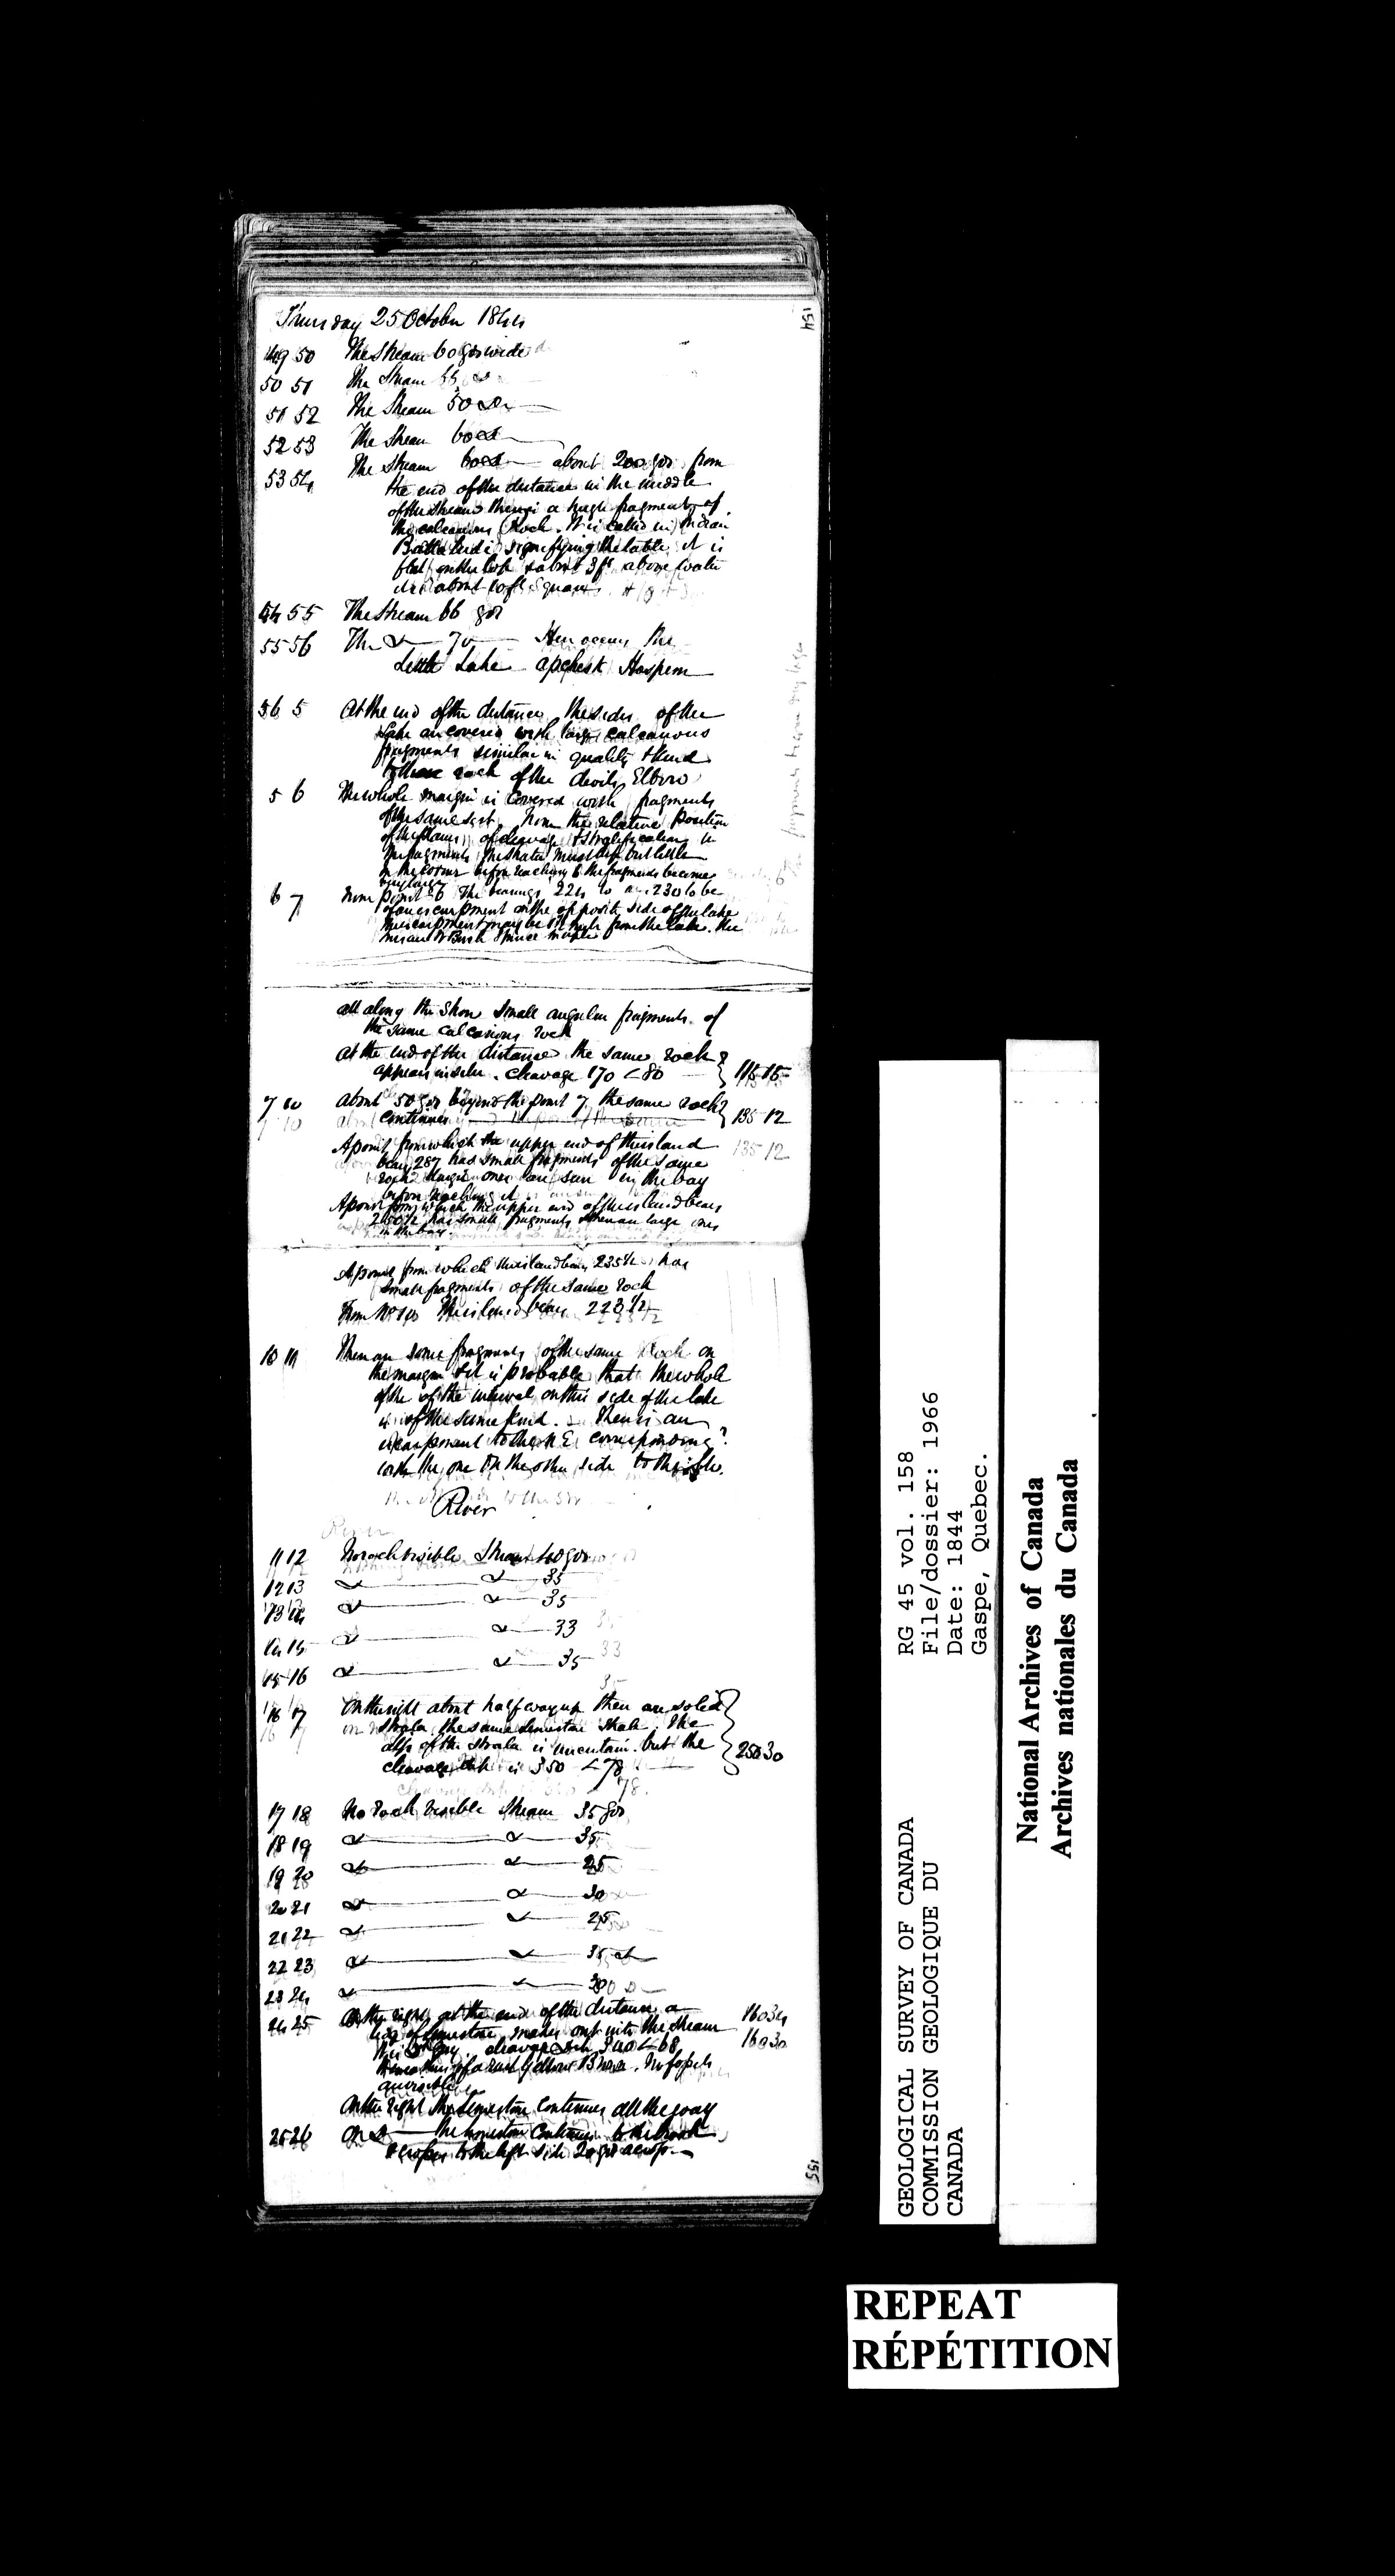 154
Thursday 25 October 1844
49 50 The Stream 60 yds wide
50 51 The Stream 55 do
51 52 The Stream 50 do
52 53 The Stream 60 do
53 54 The Stream 60 do about 200 yds from
the end of the distance in the middle
of the stream there is a huge fragment of
the calcareous Rock. It is called in Indian
signifying the table. it is
flat on the top & about 3 ft above water
it is about 10 ft square
54 55 The Stream 66 yds
55 56 The do 70 Here occurs the
Little Lake apchesk Hospem
56 5 At the end of the distance the sides of the
Lake are covered with large calcareous
fragments similar in quality & kind
to those rock of the devils Elbow
5 6 The whole margin is covered with fragments
of the same sort. From the relative position
of the planes of cleavage & stratification in
the fragments the strata must dip but little
before reaching 6 the fragments become
very large
6 7 From point 6 the bearings 224 to 230 to be
of an escarpment on the opposite side of the lake
the escarpment may be high from the lake. the
Birch Spruce maple
all along the Shore small angular fragments of
the same calcareous rock
At the end of the distance the same rock
appears in situ. cleavage 170 < 80 115 15
7 10 About 50 yds beyond the point 7 the same rock
continues 135 12
A point from which the upper end of the island
bears 287 has small fragments of the same
rock large ones are seen in the bay
before reaching it
A point from which the upper end of the island bears
250½ has small fragments there are large ones
in the bay.
A point from which the island bears 235½ has
small fragments of the same rock
From No 10 the island bears 223½
10 11 There are some fragments of the same Rock on
the margin & it is probable that the whole
of the of the interval on this side of the lake
is of the same kind. There is an
escarpment to the N E corresponding?
with the one on the other side to the
River
11 12 No rock visible Stream 40 yds
12 13 do do 35
13 14 do do 35
14 15 do do 33
15 16 do do 35
16 17 On the right about half way up there are solid
strata, the same limestone shale. The
dip of the strata is uncertain. but the
cleavage dip is 350 < 78 250 30
17 18 No rock visible Stream 35 yds
18 19 do do 35
19 20 do do 25
20 21 do do 30
21 22 do do 25
22 23 do do 35 do
23 24 do do 30
24 25 On the right at the end of the distance a 160 34
leg of limestone makes out into the stream 160 30
It is Grey. cleavage dip 340 < 68
No fossils
are visible
On the right the limestone continues all the way
25 26 On do the limestone continues to the brook
& crosses to the left side 20 yds across
155
GEOLOGICAL SURVEY OF CANADA
COMMISSION GEOLOGIQUE DU
CANADA
RG 45 vol. 158
File/dossier: 1966
Date: 1844
Gaspe, Quebec.
National Archives of Canada
Archives nationales du Canada
REPEAT
RÉPÉTITION